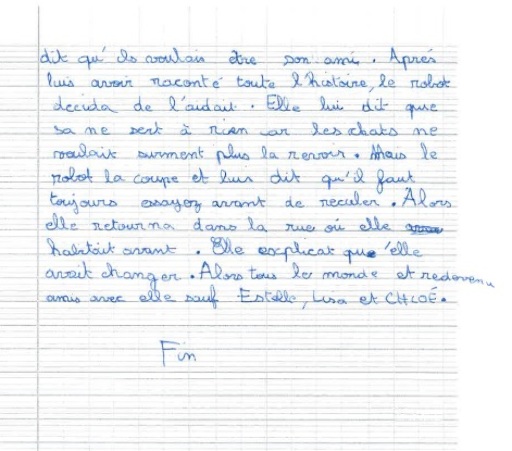 dit qu'ils voulais être son ami. Après
luis avoir raconté toute l'histoire, le robot
décida de l'aidait. Elle lui dit que
sa ne sert à rien car les chats ne
voulait surment plus la revoir. Mais le
robot la coupe et lui dit qu'il faut
toujours essayez avant de reculer. Alors
elle retourna dans la rue où elle
habitait avant. Elle explicat que'elle
avait changer. Alors tous le monde et redevenu
amis avec elle sauf Estelle, Lisa et CHLOÉ.
Fin